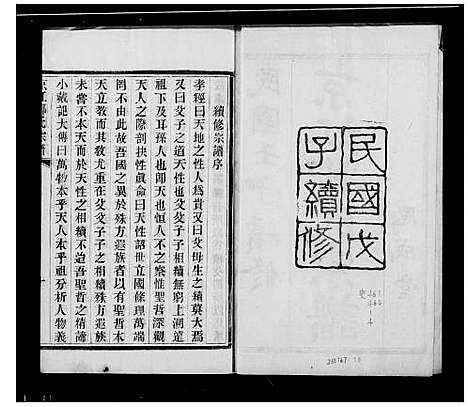 民國戊
子續修
續修宗譜序
孝經曰天地之性人爲貴又曰父母生之續莫大焉
又曰父子之道天性也父父子子相續無窮上溯遠
祖下及耳孫人也卽天也恒人不之察惟聖哲深觀
天人之際剖抉性眞命曰天性詔世立國條理萬端
罔不由此故吾國之異於殊方遐族者以有聖哲本
天立教而其教尤重在父父子子之相續殊方遐族
未嘗不本天而於天性之相續不逮吾聖哲之精諦
小戴記大傳曰萬物本乎天人本乎祖分析人物義